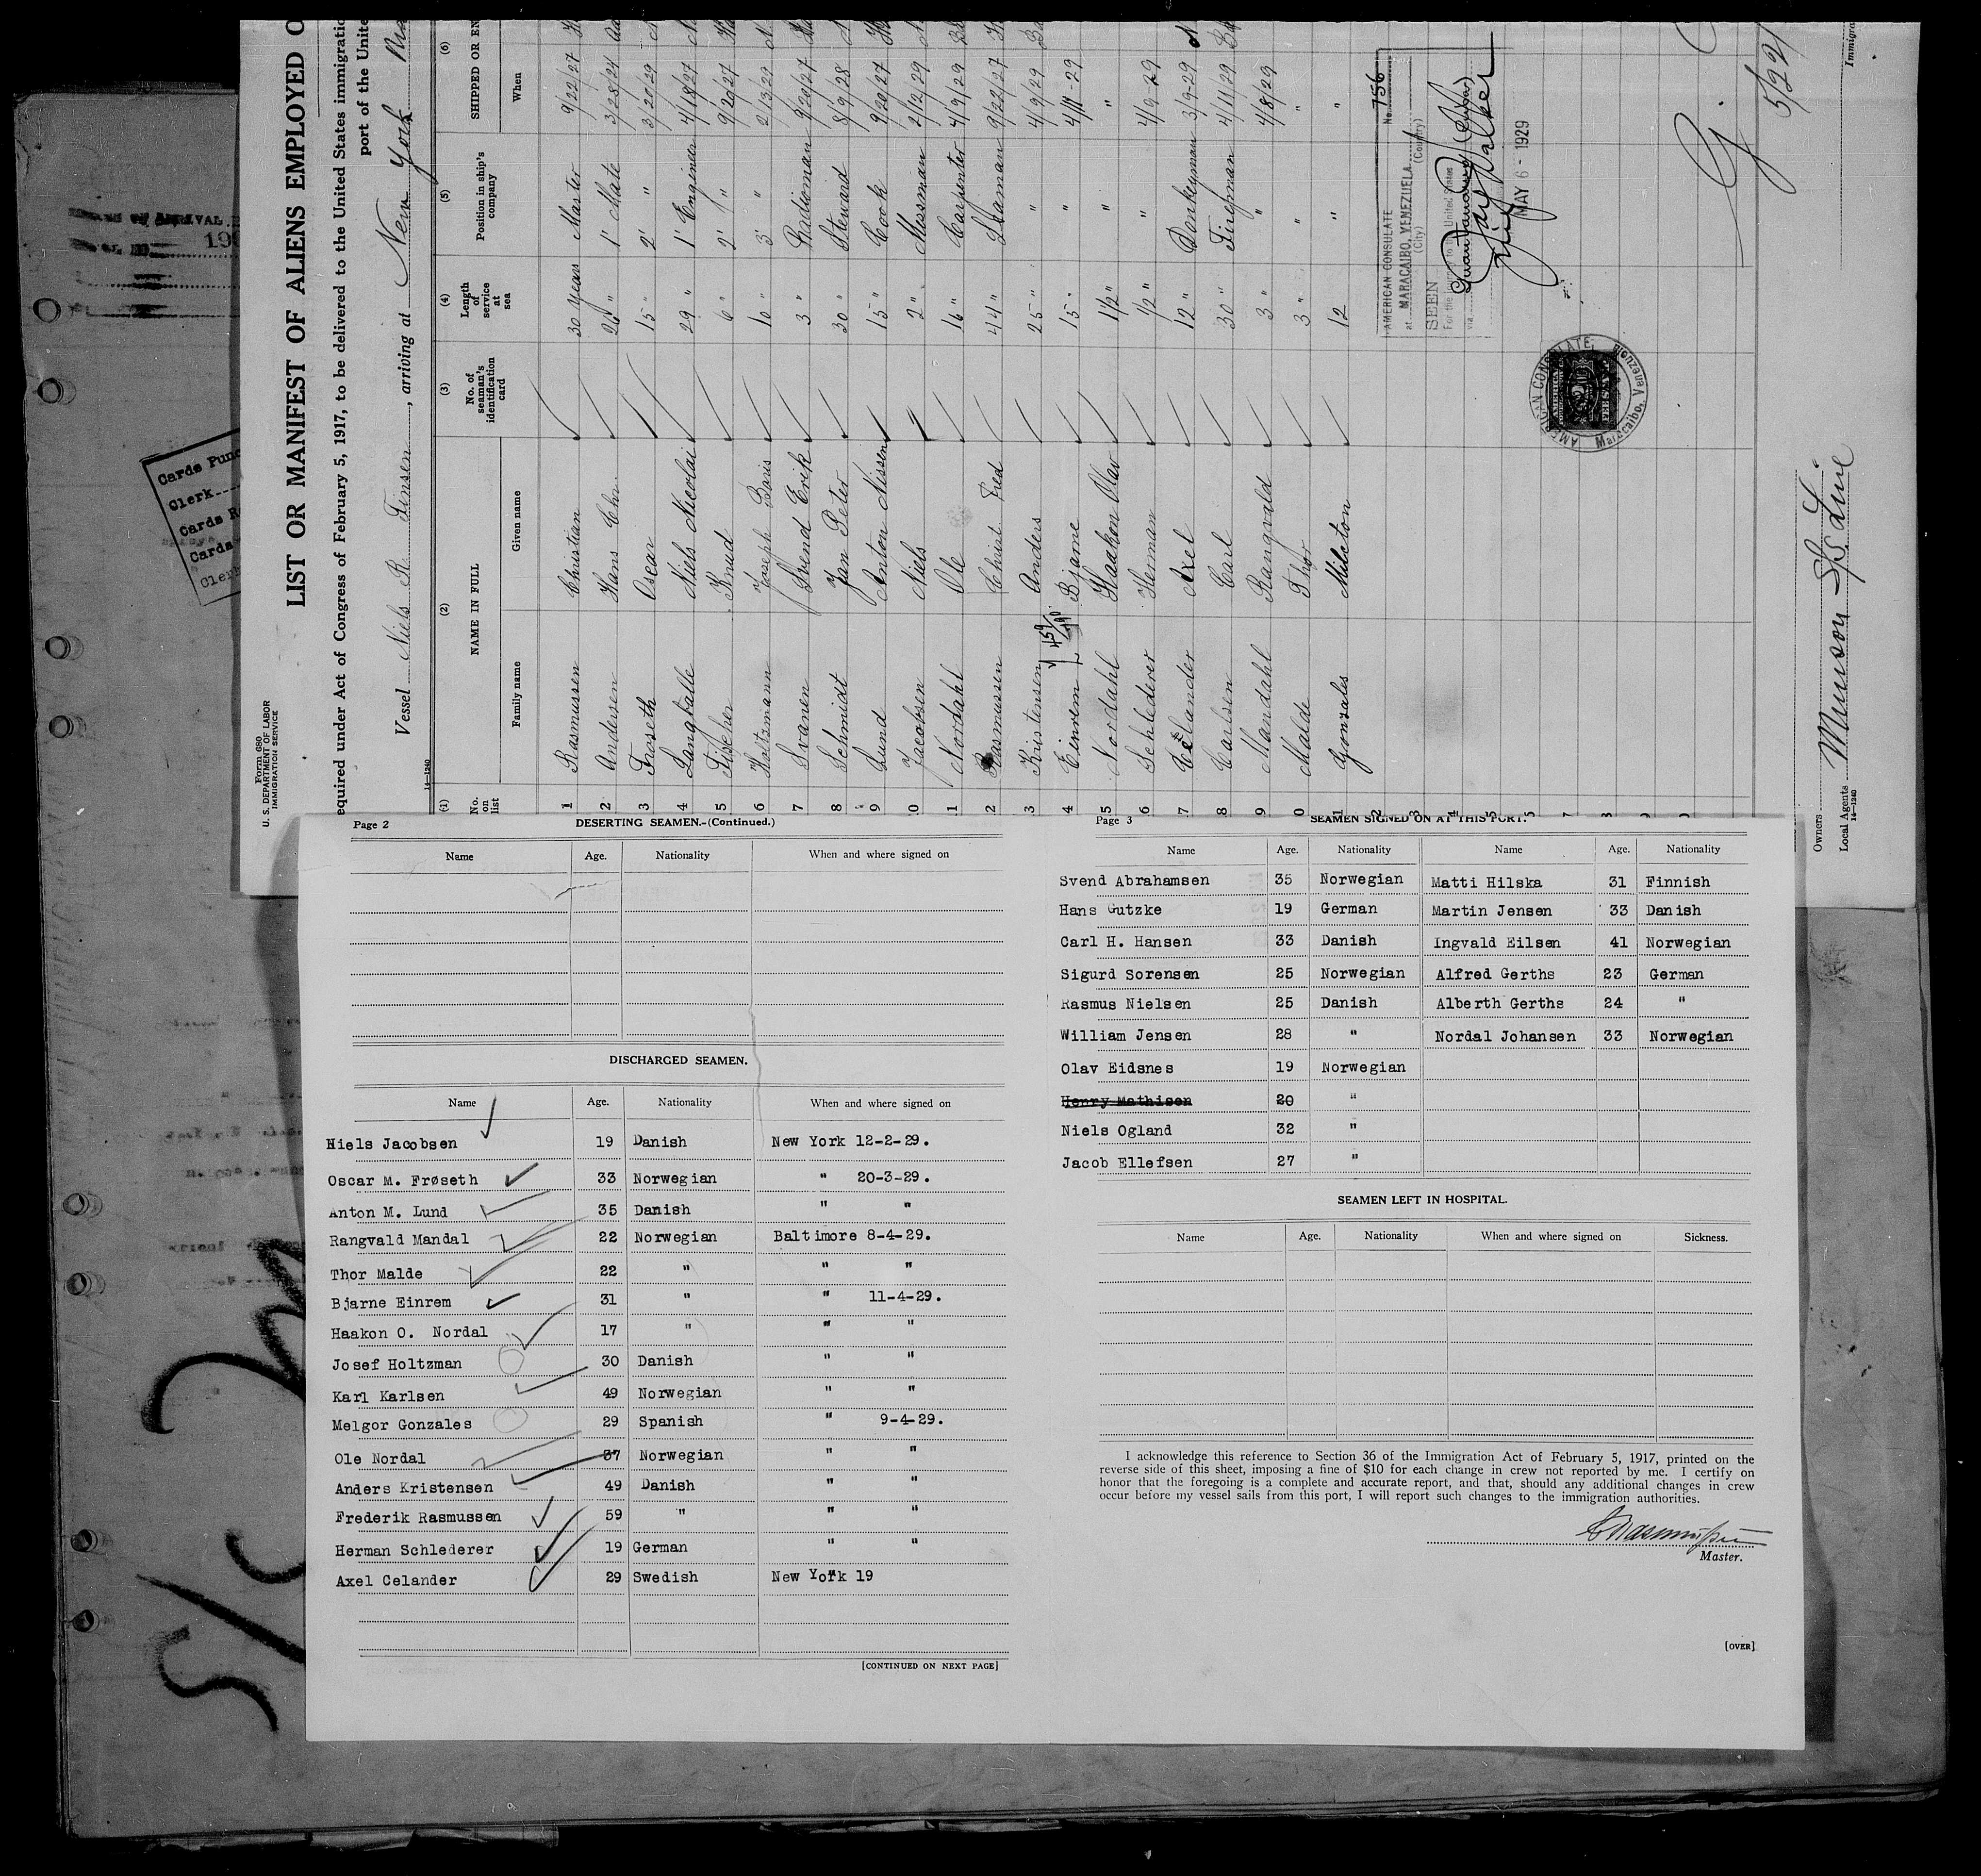 Form 680
U. S. DEPARTMENT OF LABOR
IMMIGRATION SERVICE
LIST OR MANIFEST OF ALIENS EMPLOYED O
equired under Act of Congress of February 5, 1917, to be delivered to the United States immigratio
port of the Unite
Vessel Niels R. Finsen, arriving at New York
14—1240
(1) (2) (3) (4) (5) (6)
No. on list NAME IN FULL No. of seaman's identification card Length of service at sea Position in ship's company SHIPPED OR EN
Family name Given name When
1 Rasmussen Christian 30 years Master 9/22/27
2 Andersen Hans Chr. 26 " 1' Mate 3/28/24
3 Froseth Oscar 15 " 2' " 3/20/29
4 Langballe Niels Nicolai 29 " 1' Engineer 4/18/27
5 Fischer Knud 6 " 2' " 9/20/27
6 Holtzmann Joseph Baris 10 " 3' " 2/13/29
7 Svanen Svend Erik 3 " Radioman 9/20/27
8 Schmidt Jan Peter 30 " Steward 8/9/28
9 Lund Anton Nissen 15 " Cook 9/20/27
10 Jacobsen Niels 2 " Messman 2/12/29
11 Nordahl Ole 16 " Carpenter 4/9/29
2 Rasmussen Christ. Fred 44 " Seaman 9/22/27
3 Kristensen Anders 25 " " 4/9/29
4 Einrem Bjarne 15 " " 4/11-29
5 Nordahl Haakon Olav 1½ " " "
6 Schlederer Herman ½ " " 4/9-29
7 Celander Axel 12 " Donkeyman 3/9-29
8 Carlsen Carl 30 " Fireman 4/11/29
9 Mandahl Rangvald 3 " " 4/8/29
0 Malde Thor 3 " " "
1 Gonzales Milcton 12 " "
AMERICAN CONSULATE No. 756
at MARACAIBO, VENEZUELA
(City) (Country)
SEEN
For the journey to the United States
via Guantanamo (Cuba)
Jay Walker
MAY 6 - 1929
AMERICAN CONSULATE
Maracaibo, Venezuela
5/22/
Owners
Local Agents Munson SS Line
14—1240
Immigra
Cards Punc
Clerk
Cards R
Cards
Clerk
Page 2 DESERTING SEAMEN.-(Continued.)
Name Age. Nationality When and where signed on
DISCHARGED SEAMEN.
Name Age. Nationality When and where signed on
Niels Jacobsen 19 Danish New York 12-2-29.
Oscar M. Frøseth 33 Norwegian " 20-3-29.
Anton M. Lund 35 Danish " "
Rangvald Mandal 22 Norwegian Baltimore 8-4-29.
Thor Malde 22 " " "
Bjarne Einrem 31 " " 11-4-29.
Haakon O. Nordal 17 " " "
Josef Holtzman 30 Danish " "
Karl Karlsen 49 Norwegian " "
Melgor Gonzales 29 Spanish " 9-4-29.
Ole Nordal 37 Norwegian " "
Anders Kristensen 49 Danish " "
Frederik Rasmussen 59 " " "
Herman Schlederer 19 German " "
Axel Celander 29 Swedish New York 19
[CONTINUED ON NEXT PAGE]
Page 3 SEAMEN SIGNED ON AT THIS PORT.
Name Age. Nationality Name Age. Nationality
Svend Abrahamsen 35 Norwegian Matti Hilska 31 Finnish
Hans Gutzke 19 German Martin Jensen 33 Danish
Carl H. Hansen 33 Danish Ingvald Eilsen 41 Norwegian
Sigurd Sorensen 25 Norwegian Alfred Gerths 23 German
Rasmus Nielsen 25 Danish Alberth Gerths 24 "
William Jensen 28 " Nordal Johansen 33 Norwegian
Olav Eidsnes 19 Norwegian
Henry Mathisen 20 "
Niels Ogland 32 "
Jacob Ellefsen 27 "
SEAMEN LEFT IN HOSPITAL.
Name Age. Nationality When and where signed on Sickness.
I acknowledge this reference to Section 36 of the Immigration Act of February 5, 1917, printed on the
reverse side of this sheet, imposing a fine of $10 for each change in crew not reported by me. I certify on
honor that the foregoing is a complete and accurate report, and that, should any additional changes in crew
occur before my vessel sails from this port, I will report such changes to the immigration authorities.
C Rasmussen
Master.
[OVER]